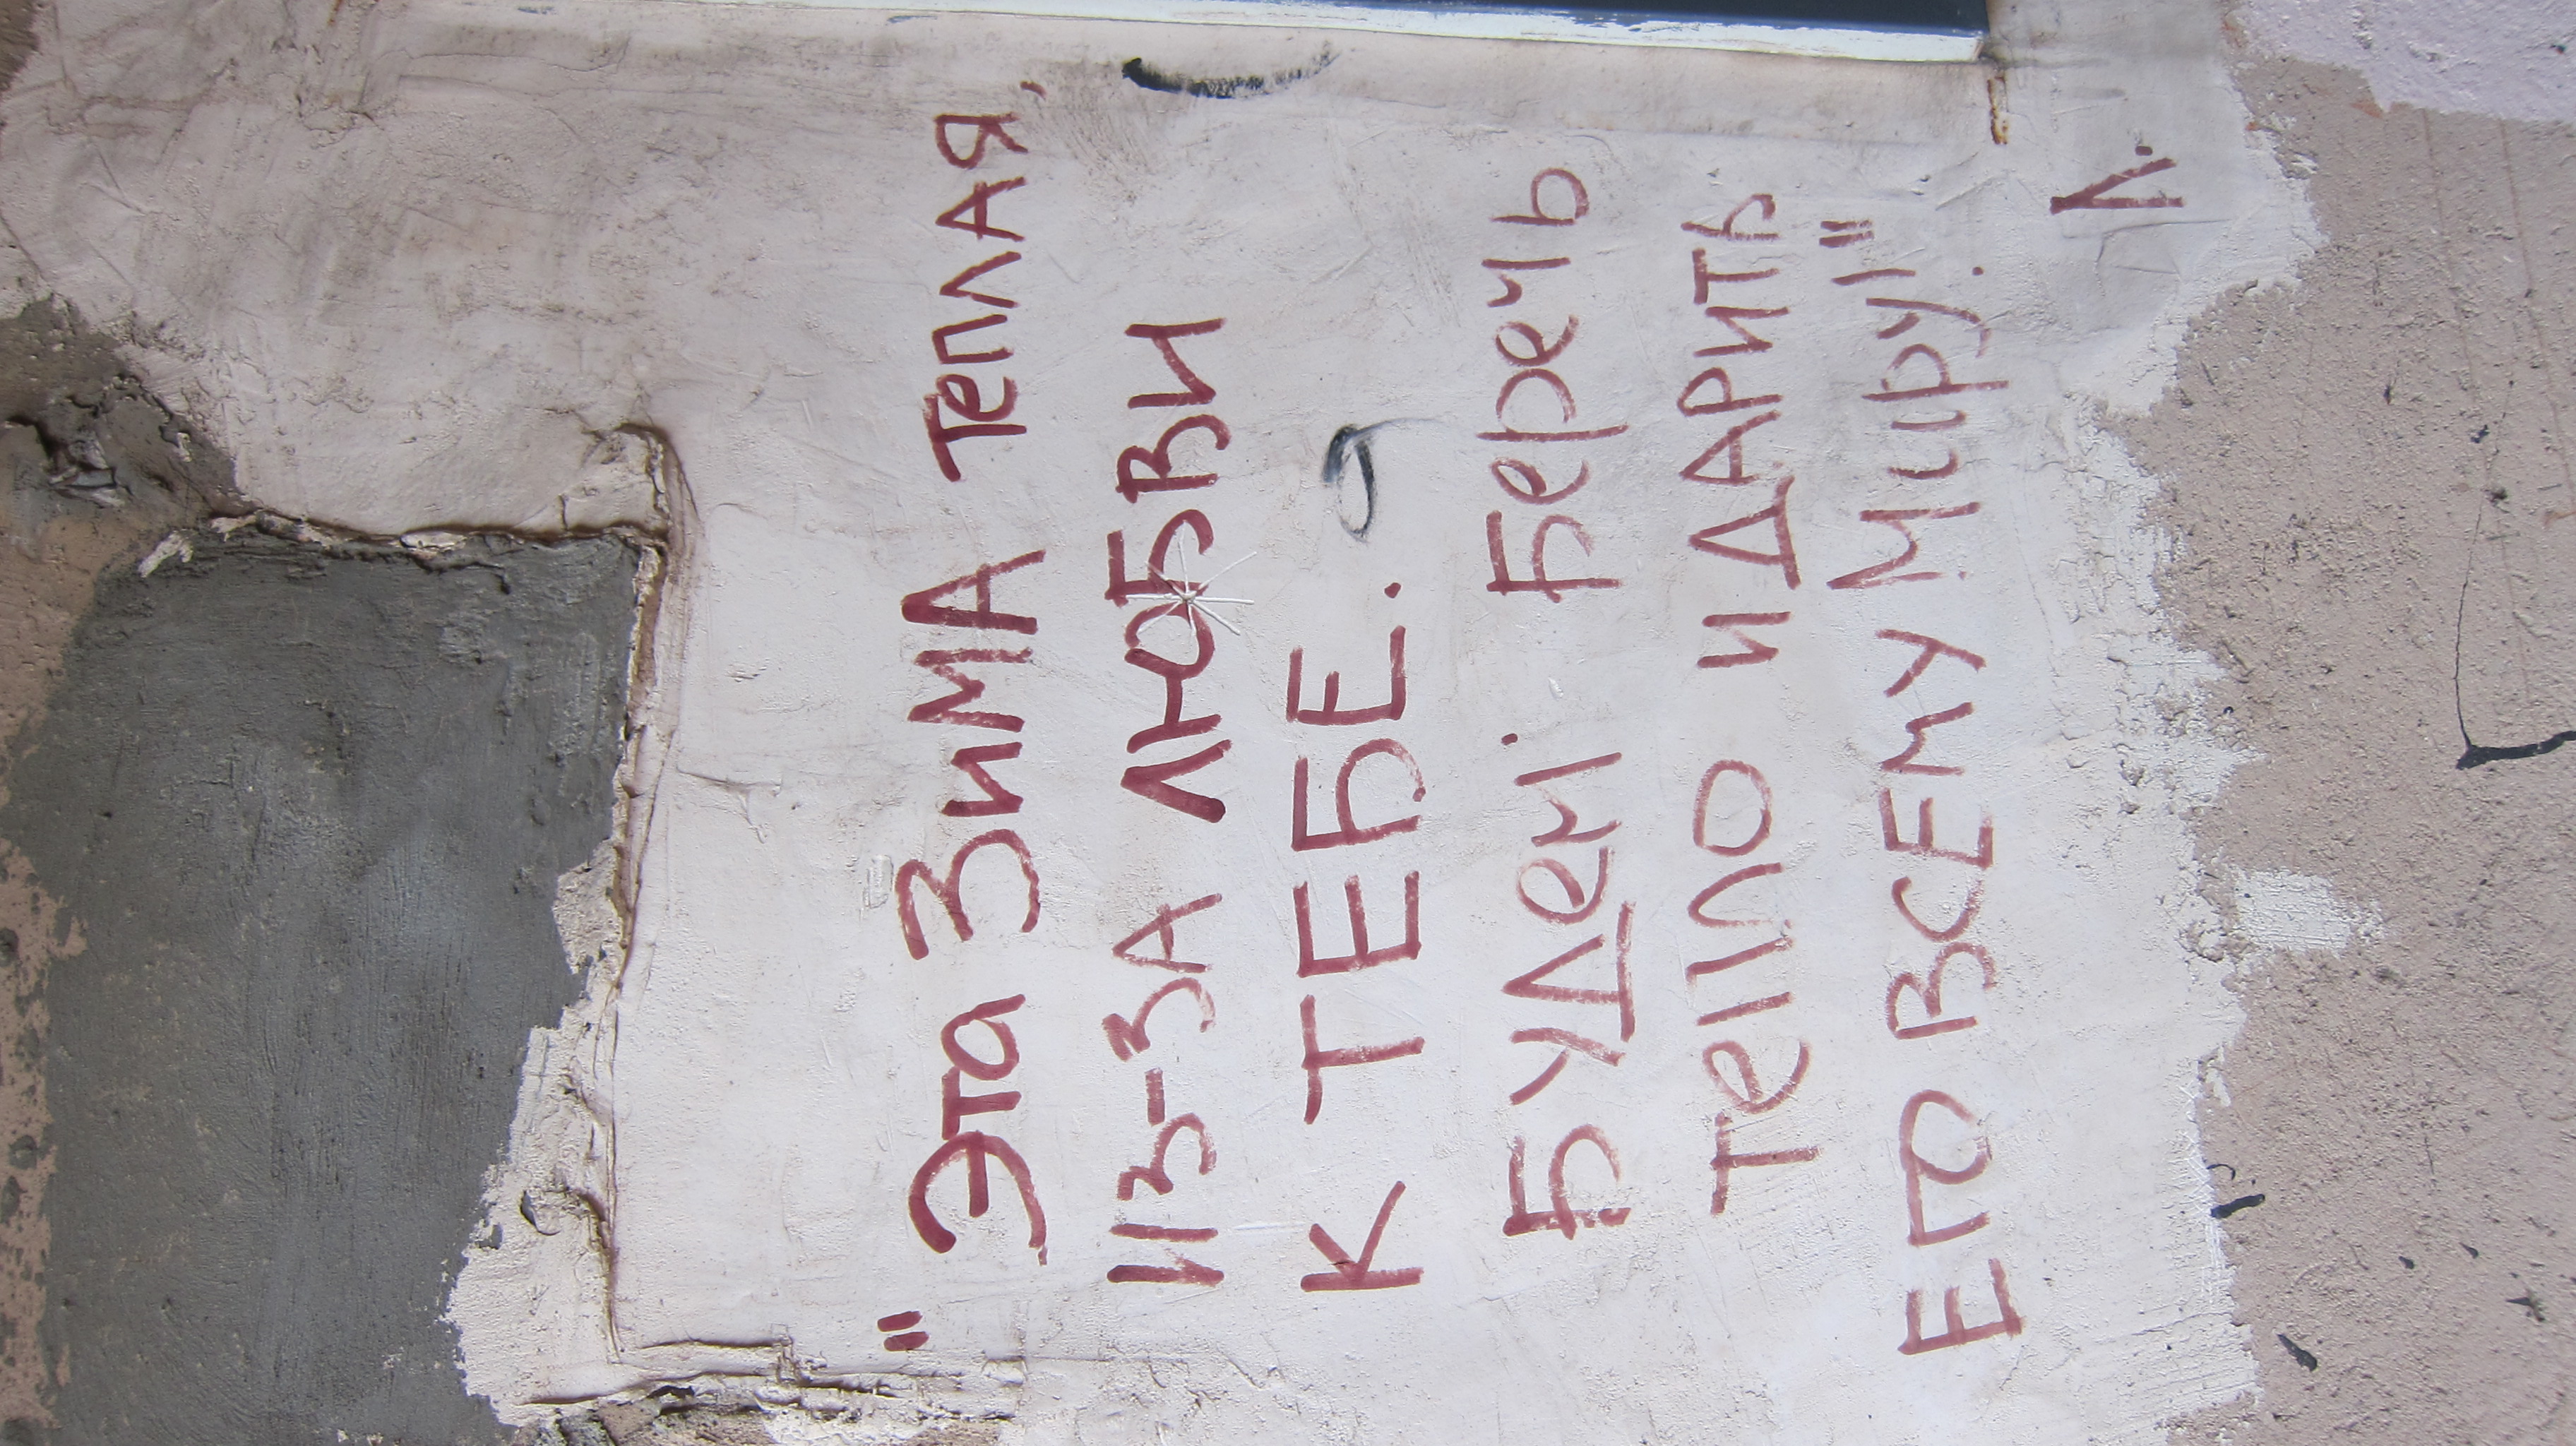 "Эта Зима теплая,
из-за любви
к тебе.
Будем беречь
тепло и дарить
его всему миру."
Л.